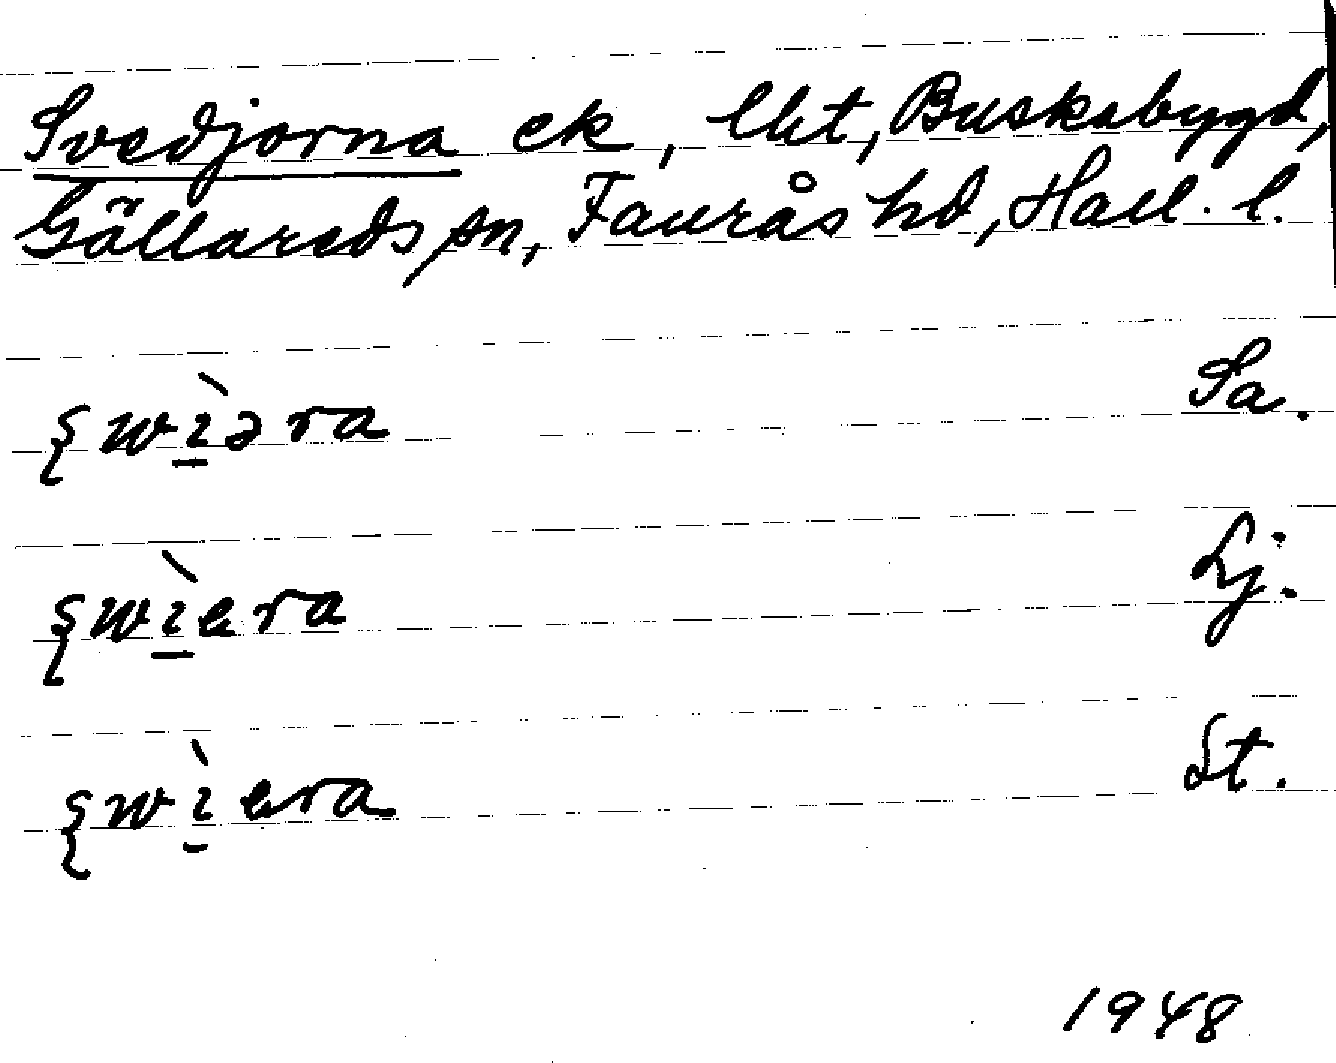 Svedjorna ek, lht, Buskabygd,
Gällareds sn, Faurås hd, Hall. l.
ʂwì̱əra Sa.
ʂwì̱era Lj.
ʂwì̱era St.
1948